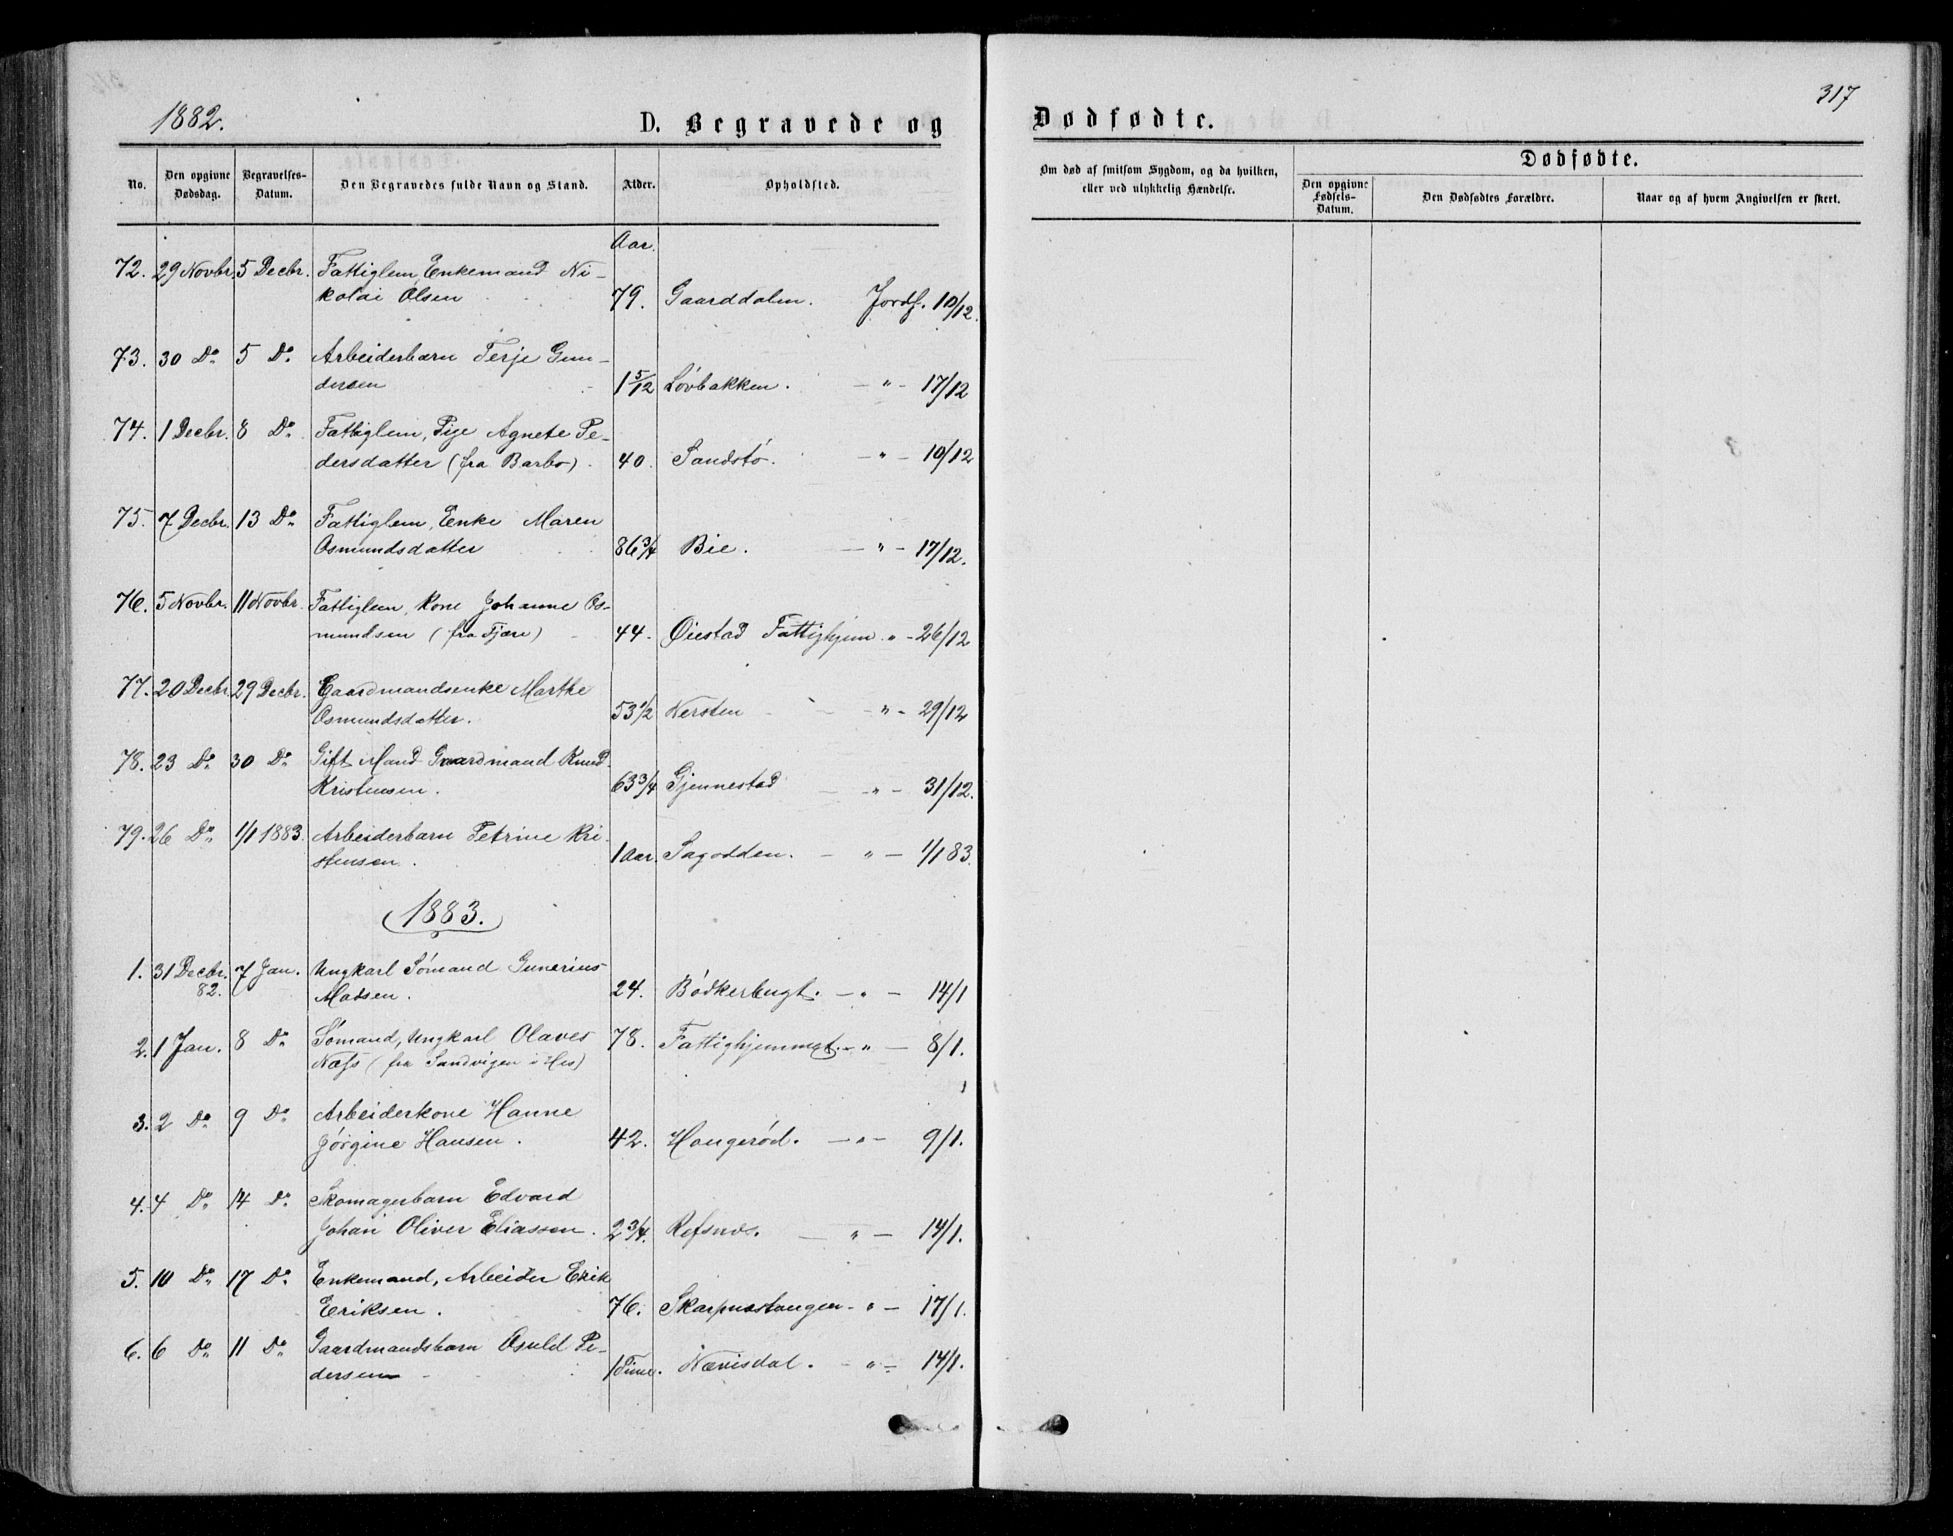 1882.
D. Begravede og
No.
Den opgivne Dødsdag.
Begravelses-Datum.
Den Begravedes fulde Navn og Stand.
Alder.
Opholdsted.
Aar.
72. 29 Novbr. 5 Decbr. Fattiglem, Enkemand Ni-
kolai Olsen 79. Gaarddalen. Jordf. 10/12.
73. 30 Do 5 Do Arbeiderbarn Terje Gun-
dersen 1 5/12 Løvbakken. — " — 17/12
74. 1 Decbr. 8 Do Fattiglem, Pige Agnete Pe-
dersdatter (fra Barbo). 40. Sandstø. — " — 10/12
75. 7 Decbr. 13 Do Fattiglem, Enke Maren
Osmundsdatter 86 3/4 Bie. — " — 17/12.
76. 5 Novbr. 11 Novbr. Fattiglem, Kone Johanne Os-
mundsen (fra Fjære) 44. Øiestad Fattighjem. " - 26/12
77. 20 Decbr. 29 Decbr. Gaardmandsenke Marthe
Osmundsdatter. 53 1/2 Nersten — " — 29/12
78. 23 Do 30 Do Gift Mand Gaardmand Knud
Kristensen. 63 3/4 Gjennestad — " — 31/12.
79. 26 Do 1/1 1883. Arbeiderbarn Petrine Kri-
stensen. 1 Aar. Sagodden. — " — 1/1 83.
1883.
1. 31 Decbr. 82. 7 Jan. Ungkarl Sømand Gunerius
Madsen. 24. Bødkerbugt. — " — 14/1
2. 1 Jan. 8 Do Sømand, Ungkarl Olaves 78. Fattighjemmet. — " — 8/1.
Næss (fra Sandvigen i His)
3. 2 Do 9 Do Arbeiderkone Hanne
Jørgine Hansen. 42. Haugerød. — " — 9/1.
4. 4 Do 14 Do Skomagerbarn Edvard
Johan Oliver Eliassen. 2 3/4. Refsnes. — " — 14/1.
5. 10 Do 17 Do Enkemand, Arbeider Erik
Eriksen. 76. Skarpnestangen — " — 17/1.
6. 6 Do 11 Do Gaardmandsbarn Osuld Pe-
dersen 1 Time. Nævisdal. — " — 14/1.
317
Dødfødte.
Om død af smitsom Sygdom, og da hvilken,
eller ved ulykkelig Hændelse.
Dødfødte.
Den opgivne Fødsels-Datum.
Den Dødfødtes Forældre.
Naar og af hvem Angivelsen er skert.